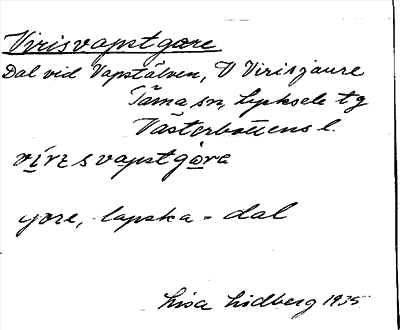 Virisvapstgøre
Dal vid Vapstälven, V Virisjaure
Tärna sn, Lycksele tg
Västerbottens l.
vírisvapstgòre
gøre, lapska = dal
Lisa Lidberg 1935